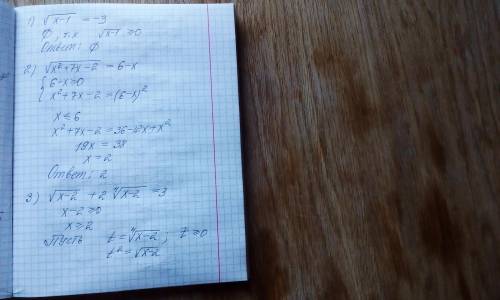 1) √(x-1) = -3
∅, т.к √(x-1) ≥ 0
Ответ: ∅
2) √(x²+7x-2) = 6-x
{ 6-x≥0
{ x²+7x-2=(6-x)²
x ≤ 6
x²+7x-2=36-12x+x²
19x = 38
x=2
Ответ: 2
3) √(x-2) + 2 ⁴√(x-2) =3
x-2≥0
x≥2
Пусть t=⁴√(x-2); t≥0
t²=√(x-2)